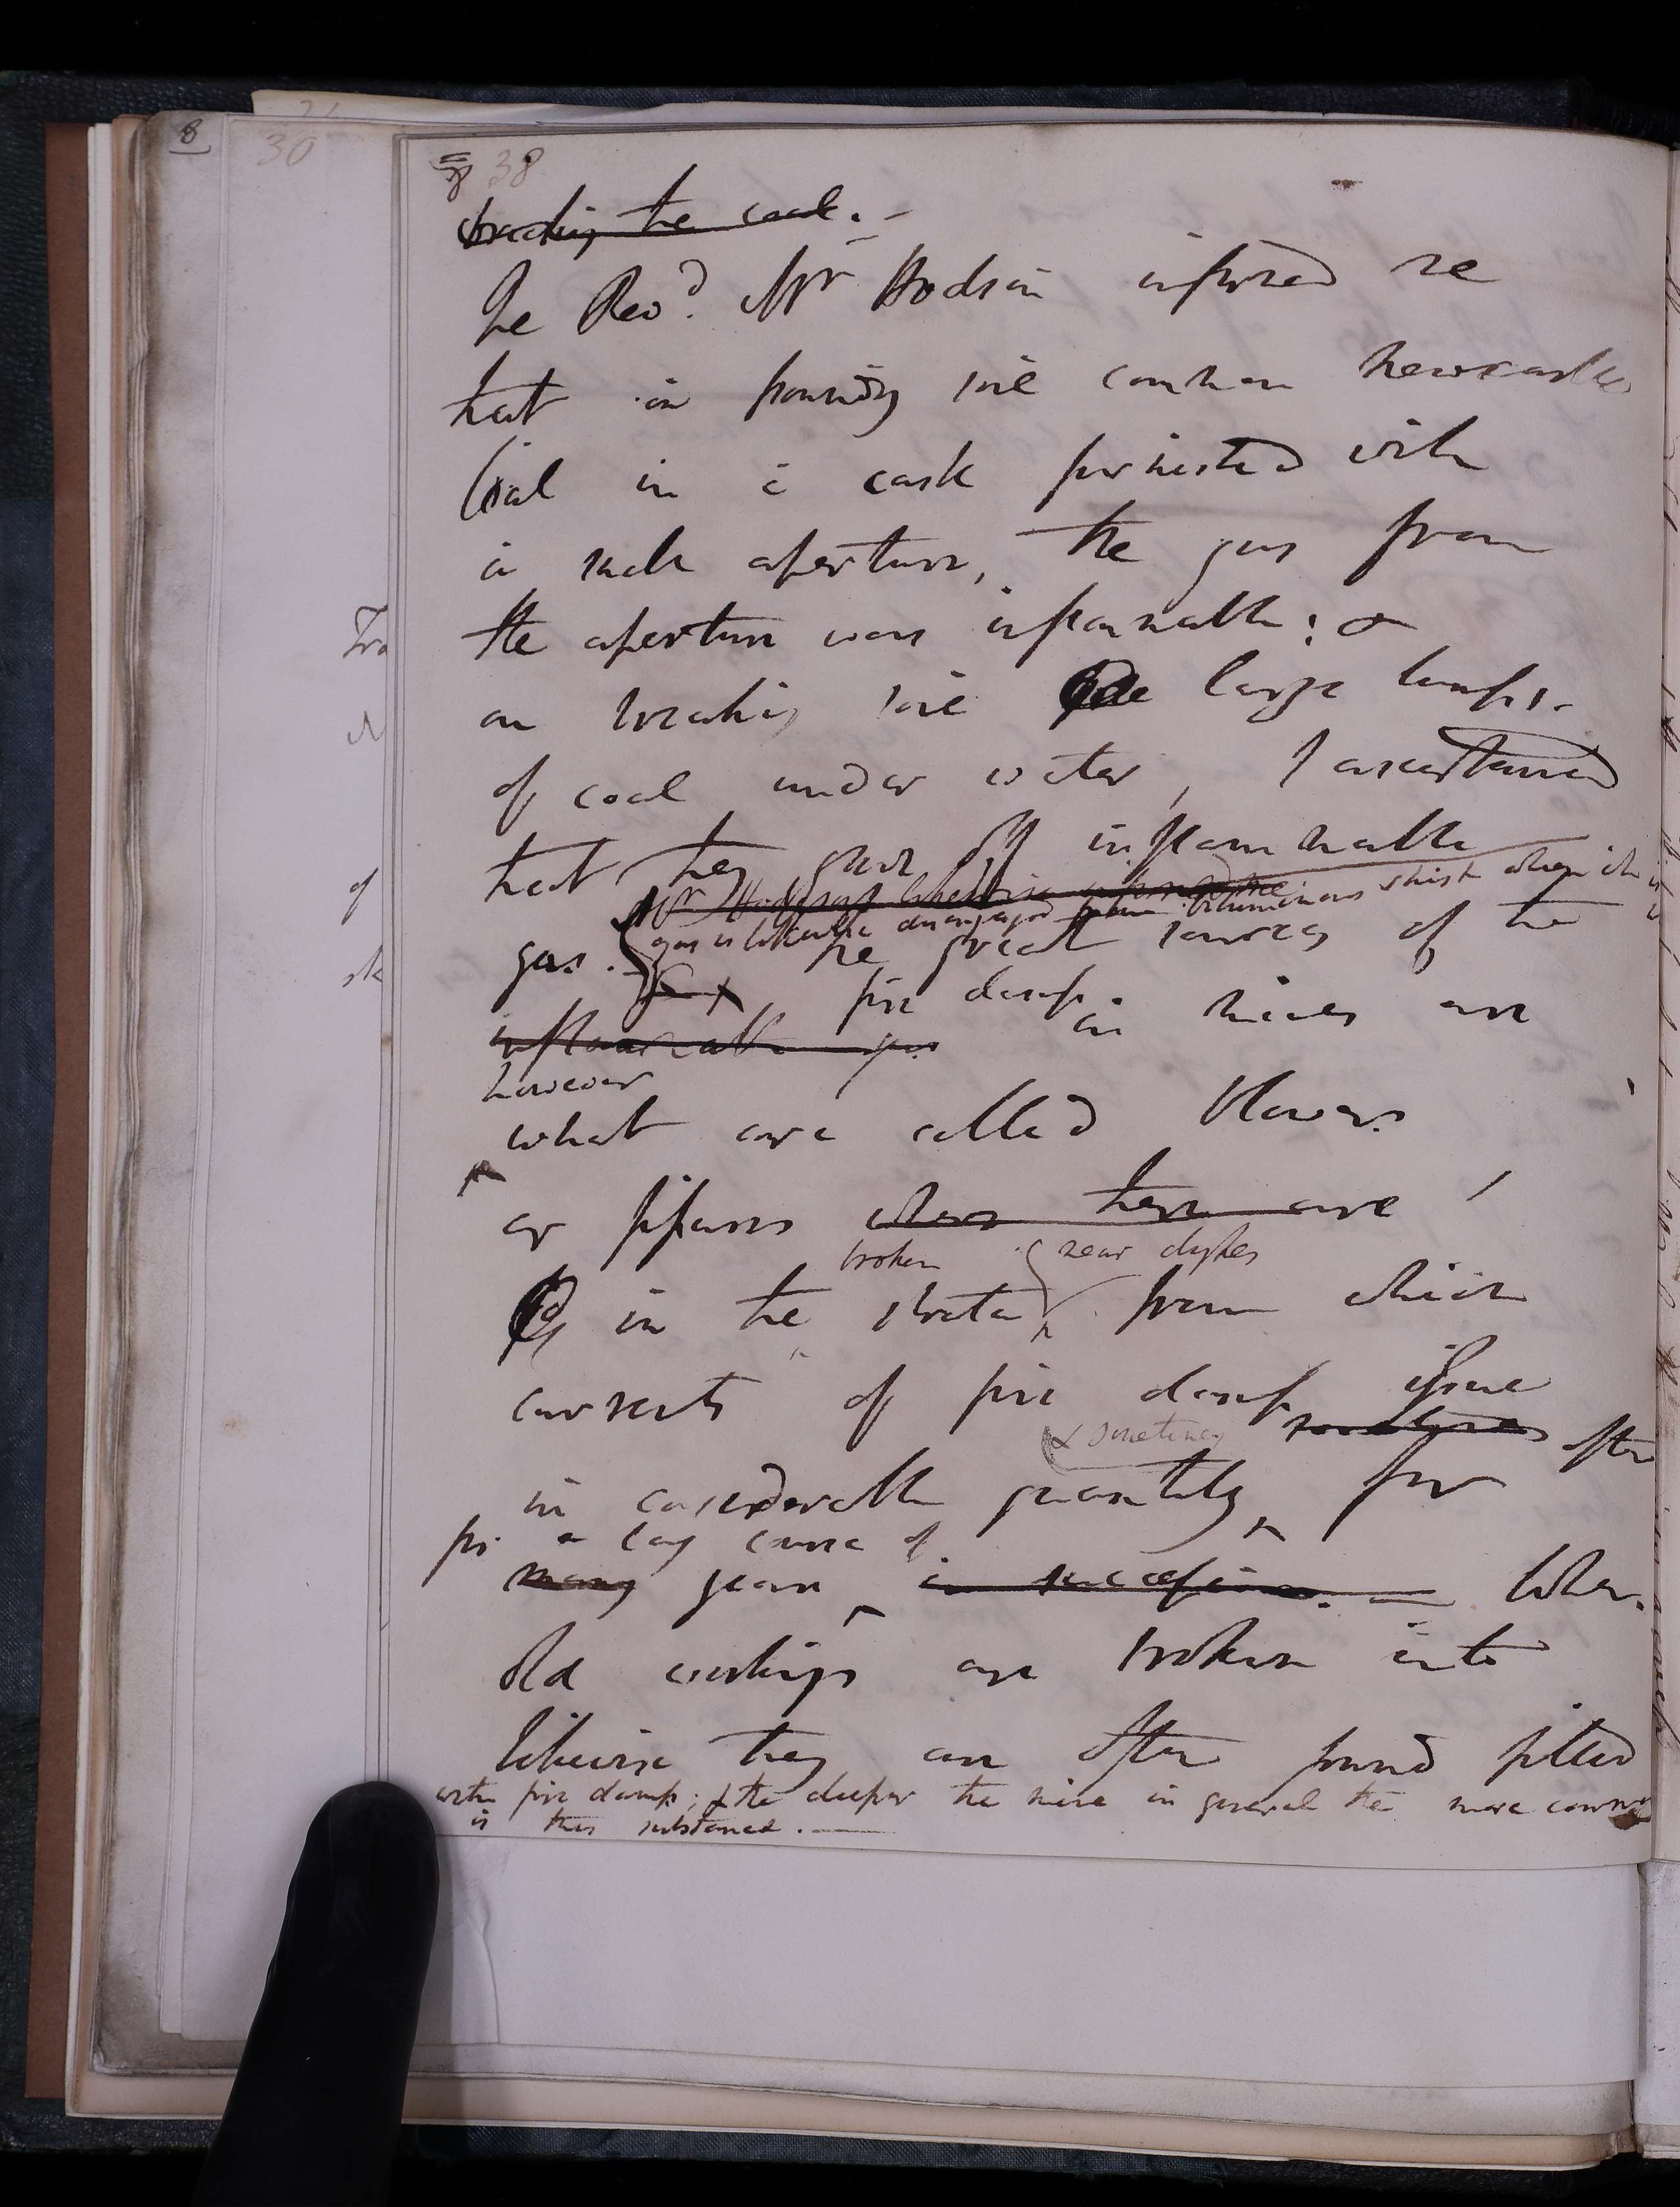 8
30
38
breaking the coal. -
The Revd. Mr Hodson informed me
that in pounding some common Newcastle
Coal in a cask furnished with
a small aperture, the gas from
the aperture was inflammable: &
on breaking some large lumps
of coal under water, I ascertained
that they gave off inflammable
Mr Hodgson likewise informed me
gas is likewise disengaged from bituminous shist when it is
gas. The great sources of the
fire damp
inflammable gas in mines are
however
what are called blowers
or fissures where there are
broken near dykes
in the strata from which
currents of fire damp issue
& sometimes sometimes often
in considerable quantity, for
for a long course of
many years in succession. - When
old workings are broken into
likewise they are often found filled
with fire damp; & the deeper the mine in general the more common
is this substance. -
Tra
of
sk